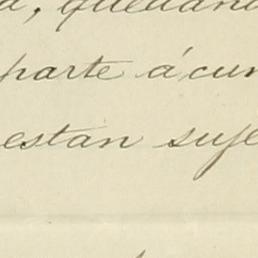 a, quedand
parte á cum
estan suje